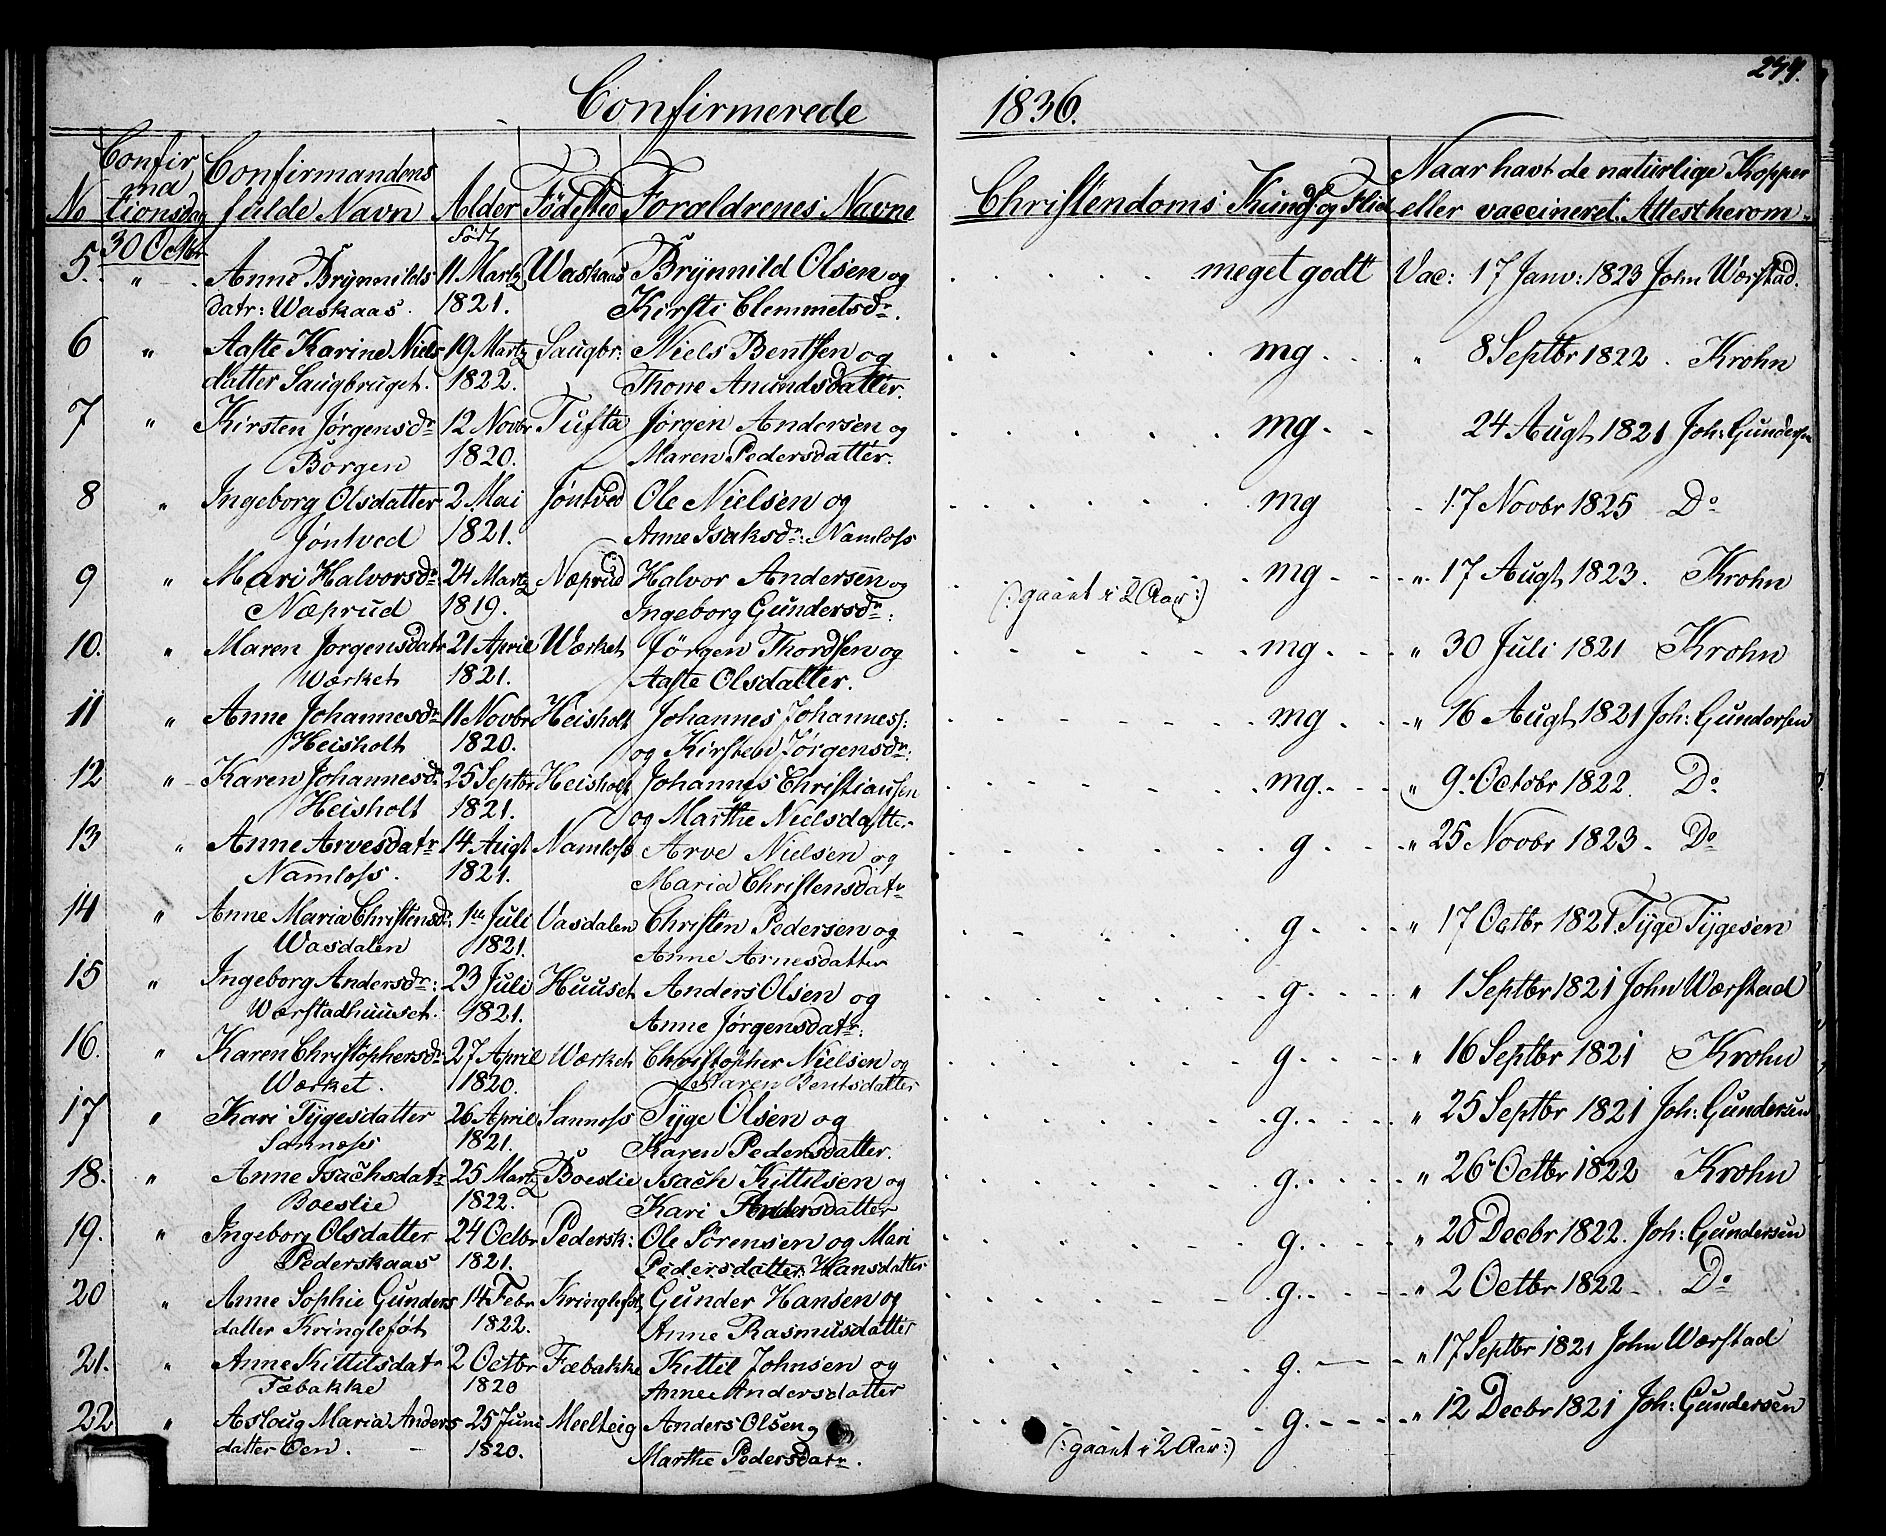 Confirmerede 1836.
No Confirmationsdag Confirmandens fulde Navn Alder Fødested Forældrenes Navne Christendoms Kundsk og Flid Naar havt de naturlige Kopper eller vaccineret. Attest herom.
30 Octbr født
5. " Anne Brynnilds 11 Martz Waskaas Brynnild Olsen og meget godt Vac: 17 Janv: 1823 John Wærstad.
datr: Waskaas. 1821. Kirsti Clemmetsdr.
6 " Aaste Karine Niels 19 Martz Saugbr: Niels Bentsen og mg " 8 Septbr 1822. Krohn
datter Saugbruget. 1822. Thone Anundsdatter.
7 " Kirsten Jørgensdr 12 Novbr Tufta Jørgen Andersen og mg 24 Augt 1821 Joh: Gundersen
Borgen 1820. Maren Pedersdatter.
8 " Ingeborg Olsdatter 2 Mai Jøntved Ole Nielsen og mg 17 Novbr 1825 Do
Jøntved 1821. Anne Isaksdr: Namløss
9 " Mari Halvorsdr 24 Martz Næprud Halvor Andersen og mg " 17 Augt 1823. Krohn
Næprud 1819. Ingeborg Gundersdr: (: gaaet i 2 Aar :)
10. " Maren Jorgensdatr 21 April Wærket Jørgen Thordsen og mg " 30 Juli 1821 Krohn
Wærket 1821. Aaste Olsdatter.
11 " Anne Johannesdr 11 Novbr Heisholt Johannes Johanness: mg " 16 Augt 1821 Joh: Gundersen
Heisholt 1820. og Kirsten Jørgensdr:
12 " Karen Johannesdr 25 Septbr Heisholt Johannes Christiansen mg. " 9 Octobr 1822. Do
Heisholt 1821. og Marthe Nielsdatter
13 " Anne Arvesdatr 14 Augt Namløss Arve Nielsen og g " 25 Novbr 1823. Do
Namløss. 1821. Maria Christensdatr
14 " Anne Maria Christensdr: 1te Juli Vasdalen Christen Pedersen og g. " 17 Octbr 1821. Tyge Tygesen
Wasdalen 1821. Anne Arnesdatter
15 " Ingeborg Andersdr: 23 Juli Huuset Anders Olsen og g " 1 Septbr 1821 John Wærstad
Wærstadhuuset. 1821. Anne Jørgensdatr.
16. " Karen Christophersdr 27 April Wærket Christopher Nielsen og g " 16 Septbr 1821 Krohn
Wærket. 1820. Karen Bentsdatter
17 " Kari Tygesdatter 26 April Sannøss Tyge Olsen og g. " 25 Septbr 1821 Joh: Gundersen
Sannøss 1821. Karen Pedersdatter.
18. " Anne Isachsdatr 25 Martz Boeslie Isach Kittilsen og g. " 26 Octbr 1822 Krohn
Boeslie 1822. Kari Andersdatter
19. " Ingeborg Olsdatter 24 Octbr Pedersk: Ole Sørensen og Mari g. " 20 Decbr 1822. Joh: Gundersen
Pederskaas 1821. Pedersdatter Hansdatter
20 " Anne Sophie Gunders 14 Febr Kringlefot Gunder Hansen og g. " 2 Octbr 1822. Do
datter Kringlefot 1822. Anne Rasmusdatter
21. " Anne Kittilsdatr 2 Octbr Fæbakke Kittil Johnsen og g. " 17 Septbr 1821 John Wærstad
Fæbakke 1820 Anne Andersdatter
22 " Asloug Maria Anders 25 Juni Meelteig Anders Olsen og g. " 12 Decbr 1821 Joh: Gundersen
datter Oen. 1820. Marthe Pedersdatr. (: gaaet i 2 Aar :)